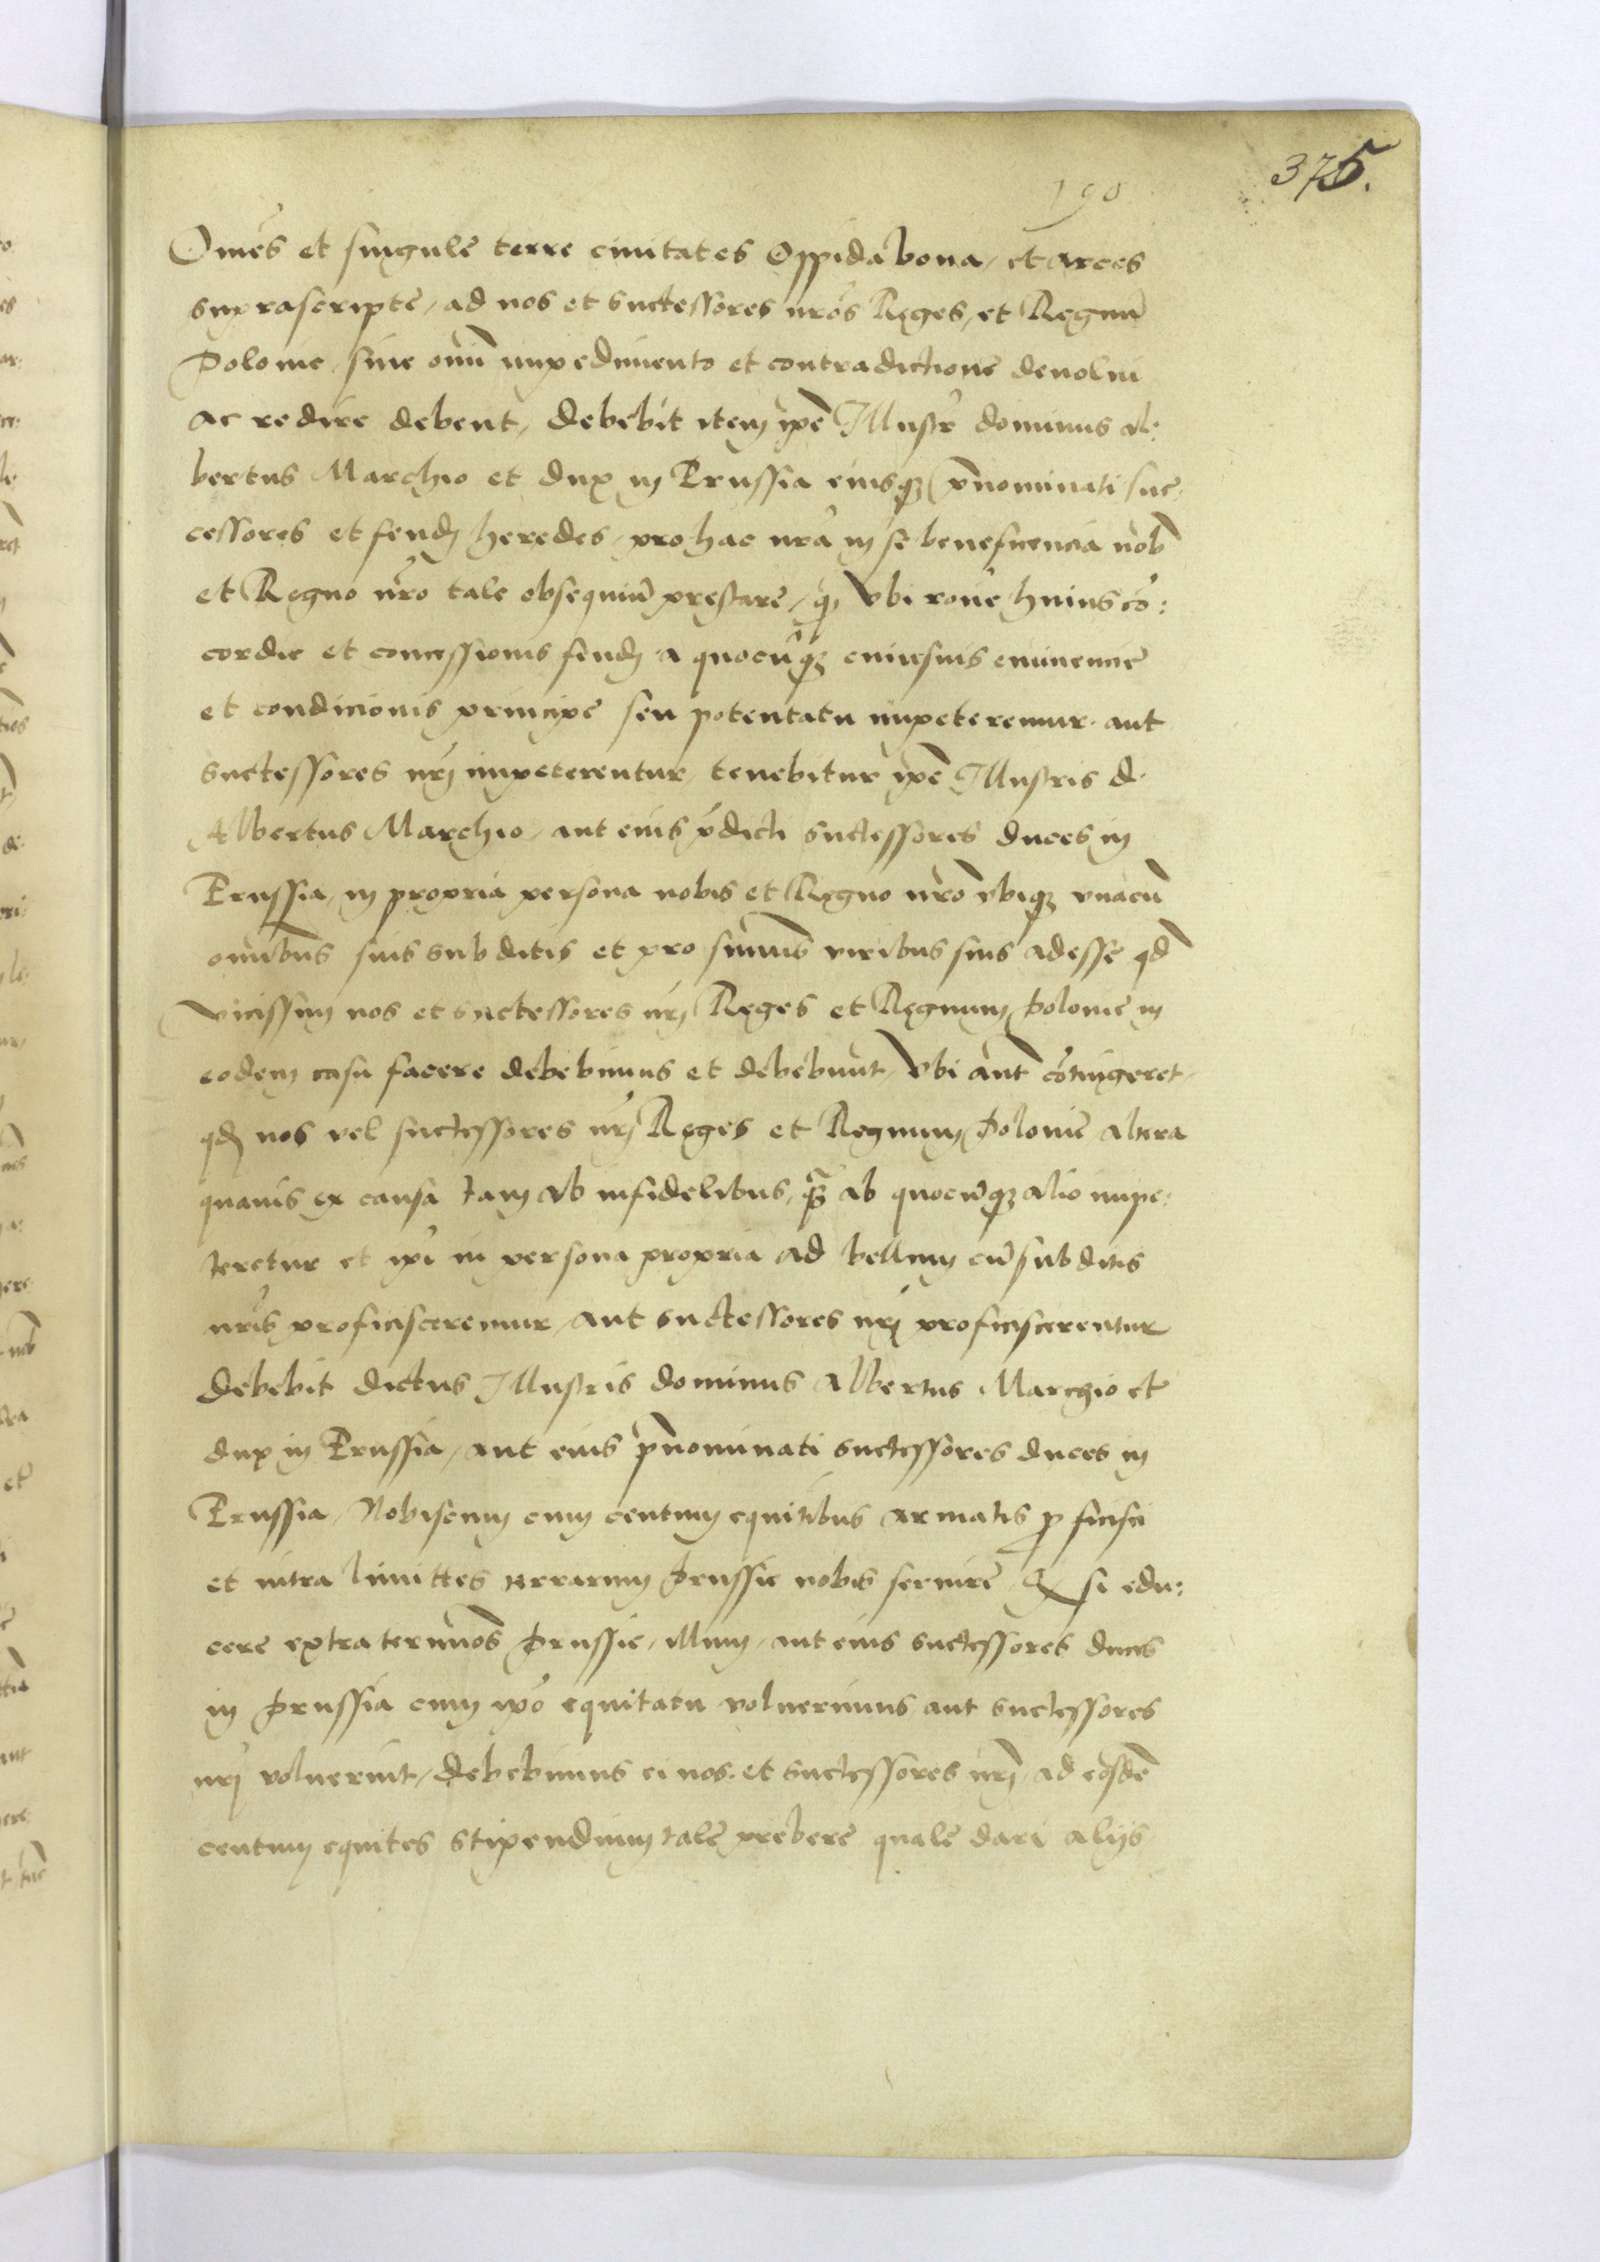 375.
190
Om̃es et singule terre ciuitates Oppida bona, et arces
suprascripte, ad nos et successores nr̃os Reges, et Regnũ
Polonie, sine om̃i impedimento et contradictione deuolui
ac redire debent, debebit item ip̃e Illustr̃ dominus Al:
bertus Marchio et dux in Prussia eiusq3 p̃nominati suc:
cessores et feudj heredes, pro hac nr̃a in se beneficencia nob̃
et Regno nr̃o tale obsequiũ prestare, q̃ vbi rõne huius cõ:
cordie et concessionis feudj a quocũq3 cuiusuis eminencie
et condicionis principe seu potentatu impeteremur. aut
successores nr̃j impeterentur, tenebitur ip̃e Illustris d.
Albertus Marchio, aut eius p̃dicti successores duces in
Prussia, in propria persona nobis et Regno nr̃o vbiq3 vnacũ
omnibus suis subditis et pro sum̃is viribus suis adesse qd̃
vicissim nos et successores nr̃j Reges et Regnum Polonie in
eodem casu facere debebimus et debebunt, Vbi aũt cõtingeret,
qd̃ nos vel successores nr̃j Reges et Regnum Polonie altera
quauis ex causa tam ab infidelibus, q̃ ab quocũq3 alio impe:
teretur et ip̃i in persona propria ad bellum cũ subditis
nr̃is proficisceremur, aut successores nr̃j proficiscerentur
debebit dictus Illustris dominus Albertus Marchio et
dux in Prussia, aut eius p̃nominati successores duces in
Prussia, Nobiscum cum centum equitibus armatis proficisci
et intra limittes terrarum Prussie nobis seruire, Q̃ si edu:
cere extra terminos Prussie, illum, aut eius successores duces
in Prussia cum ip̃o equitatu voluerimus aut successores
nr̃j voluerint, debebimus ei nos. et successores nr̃j, ad eosdẽ
centum equites stipendium tale prebere quale dari alijs